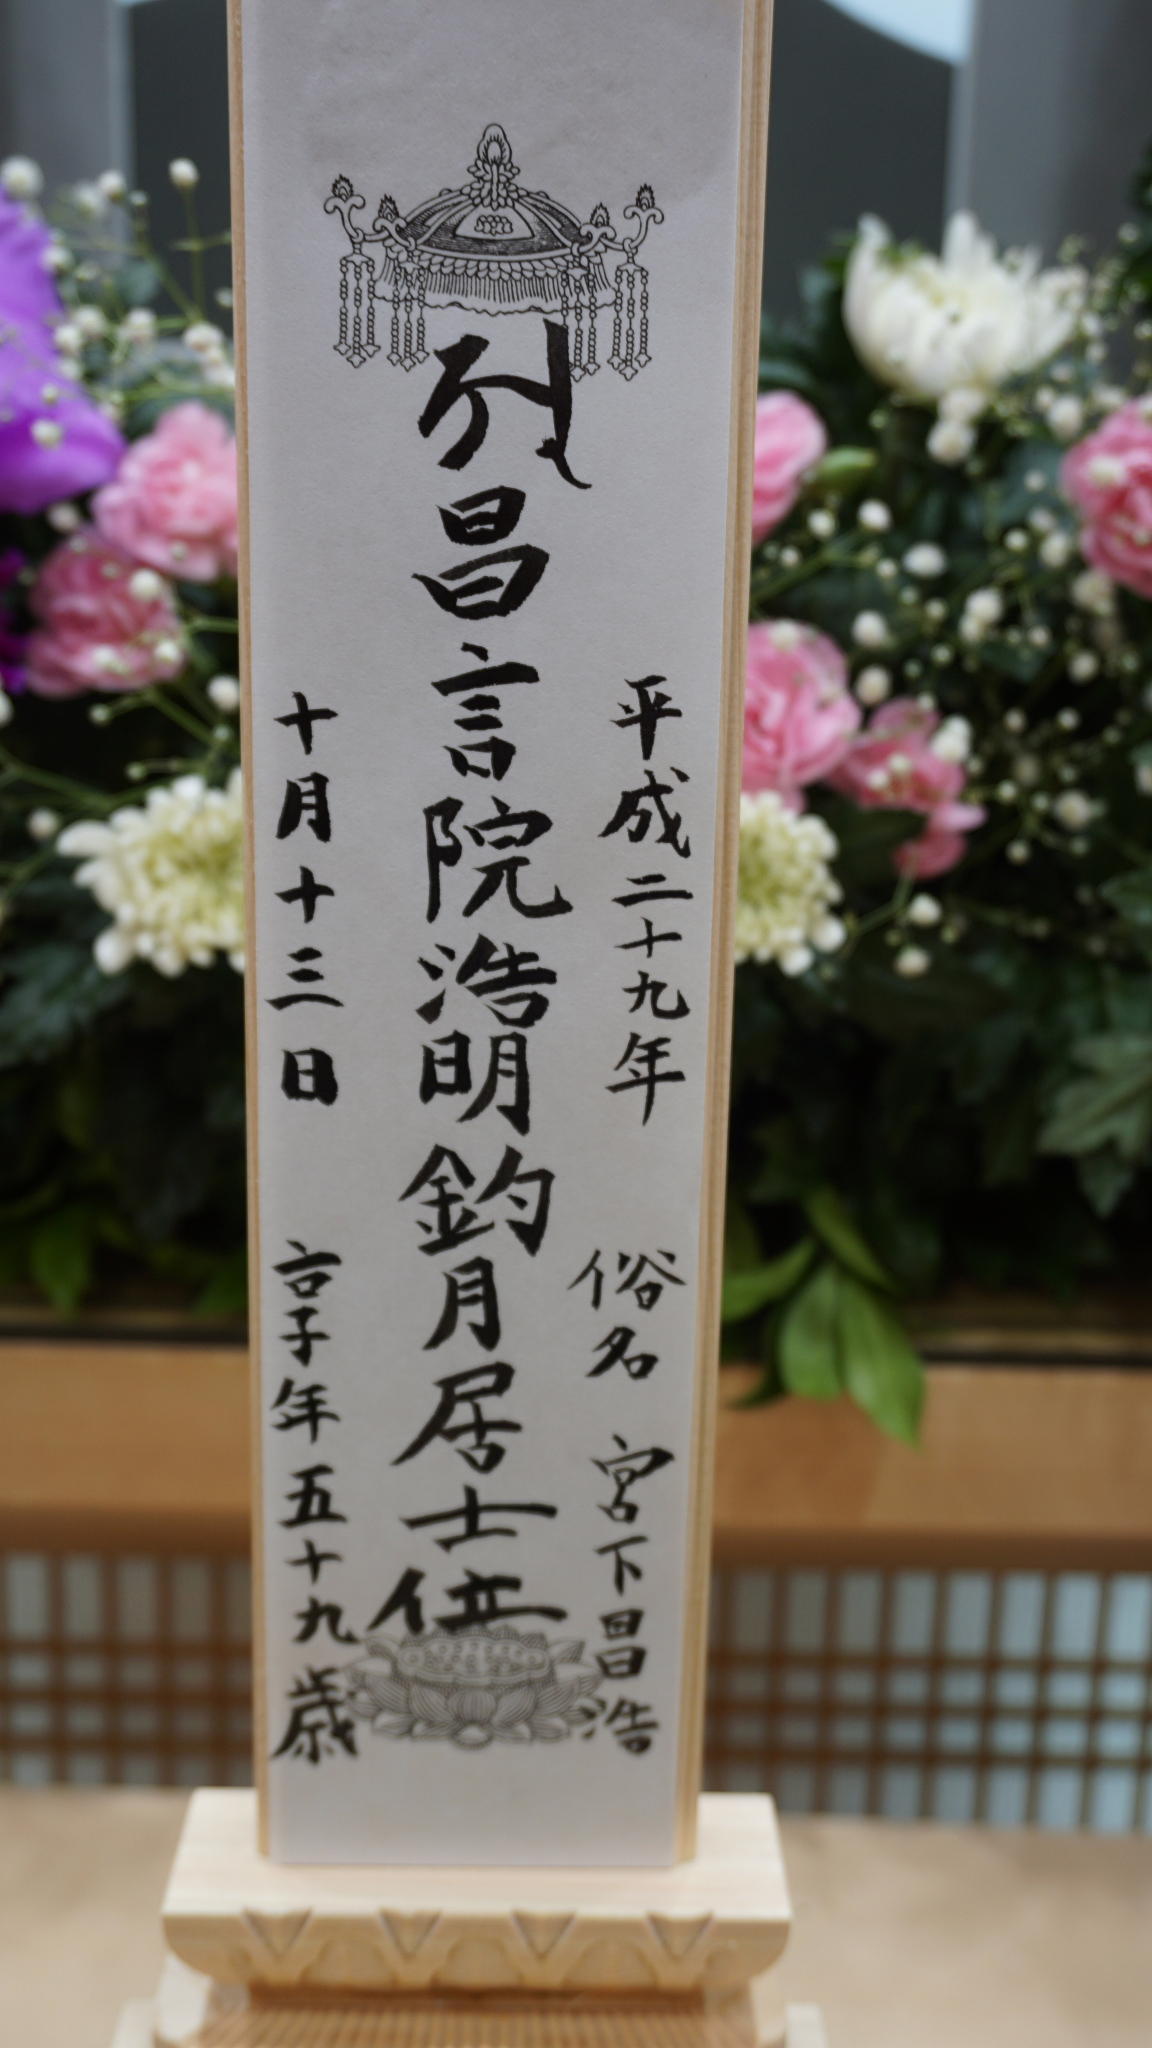 平成二十九年 俗名 宮下昌浩
𑖀 昌言院浩明釣月居士位
十月十三日 享年五十九歳